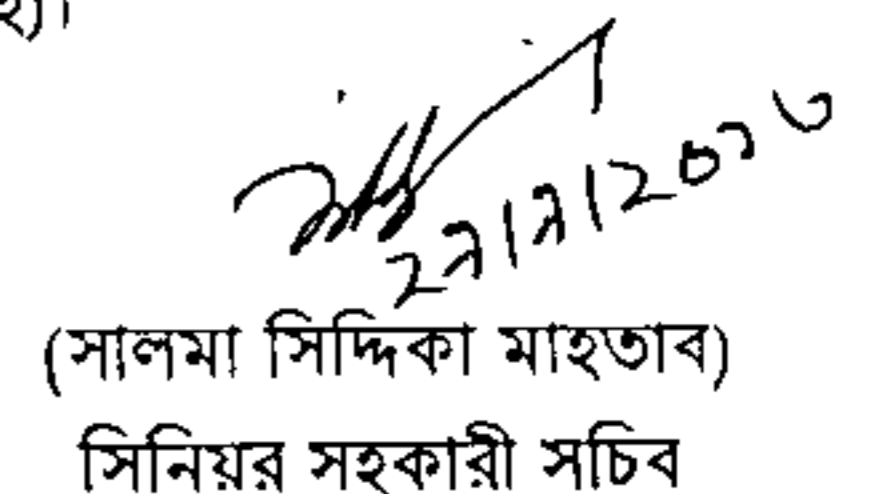 ২৯|৯|২০১৩
(সালমা সিদ্দিকা মাহতাব)
সিনিয়র সহকারী সচিব